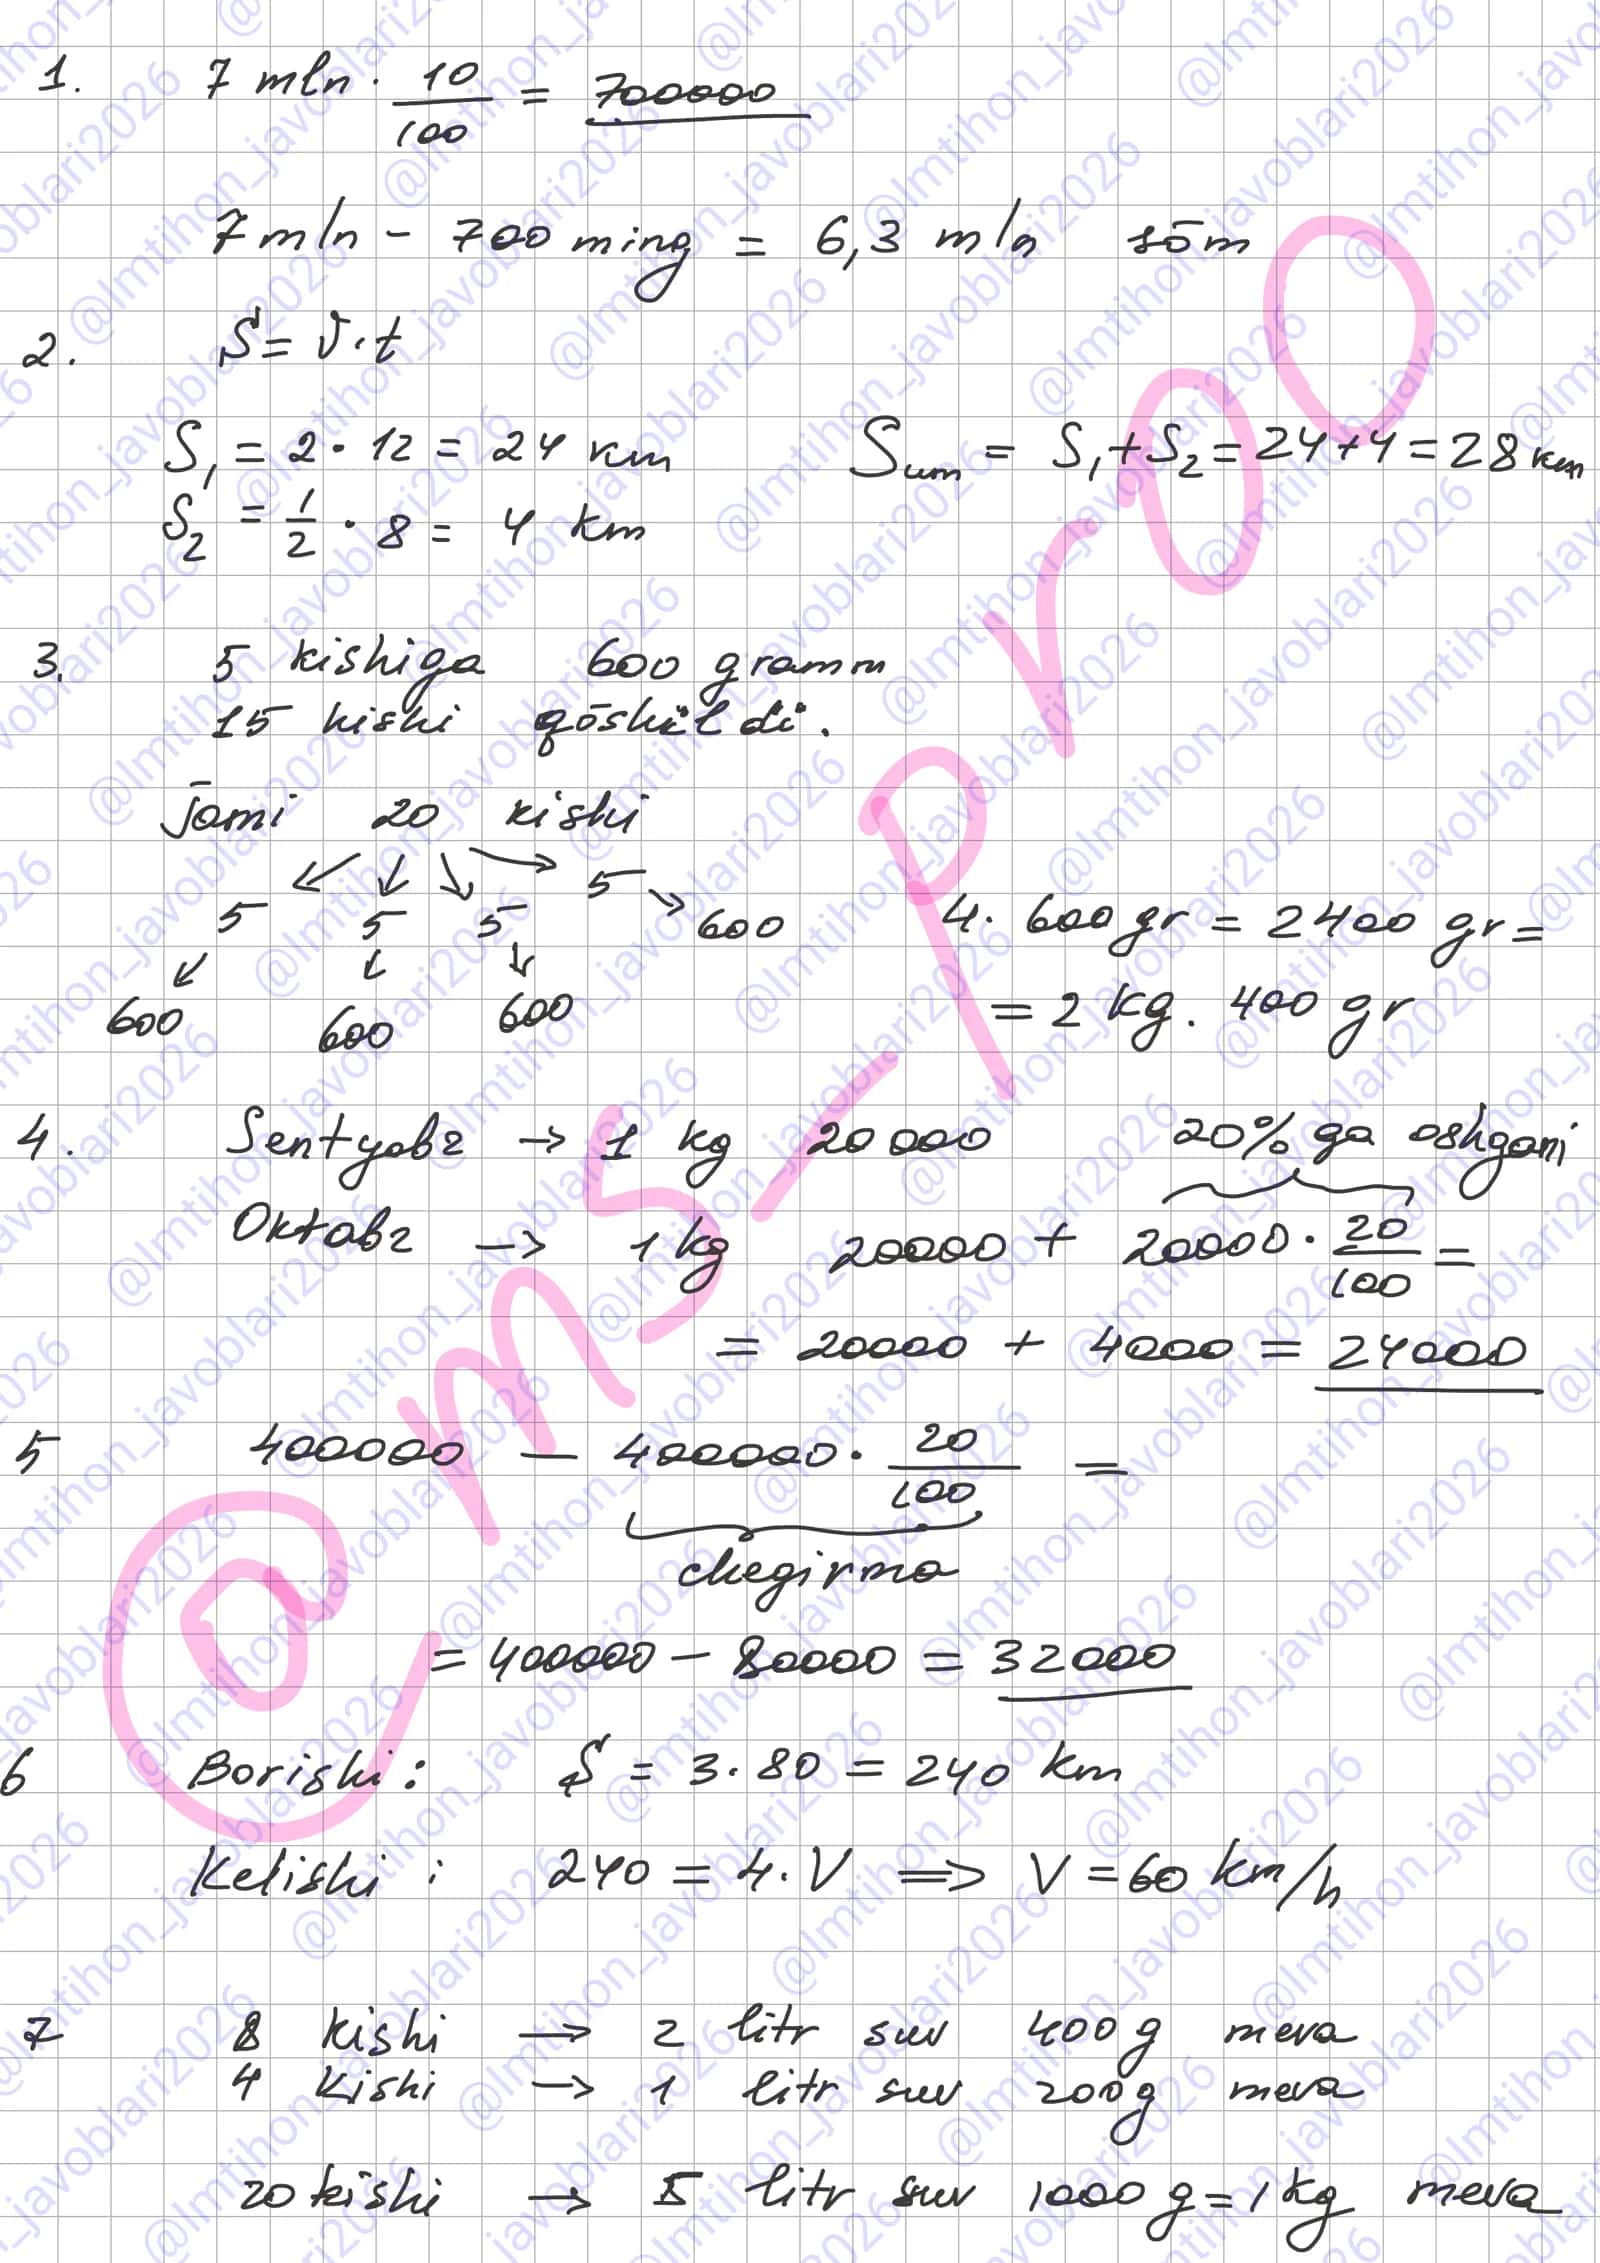 1. 7 mln · 10/100 = 700000
7 mln - 700 ming = 6,3 mln sōm
2. S = V·t
S₁ = 2 · 12 = 24 km
Sum = S₁ + S₂ = 24 + 4 = 28 km
S₂ = 1/2 · 8 = 4 km
3. 5 kishiga 600 gramm
15 kishi qōshildi.
Jami 20 kishi
5 5 5 5
600 600 600 600
4. 600 gr = 2400 gr =
= 2 kg. 400 gr
4. Sentyabr → 1 kg 20000
20% ga oshgani
Oktabr → 1 kg 20000 + 20000 · 20/100 =
= 20000 + 4000 = 24000
5 400000 - 400000 · 20/100 =
chegirma
= 400000 - 80000 = 32000
6 Borishi: S = 3 · 80 = 240 km
Kelishi: 240 = 4 · V ⟹ V = 60 km/h
7 8 kishi → 2 litr suv 400 g meva
4 kishi → 1 litr suv 200 g meva
20 kishi → 5 litr suv 1000 g = 1 kg meva
@ms_proo
@Imtihon_javoblari2026